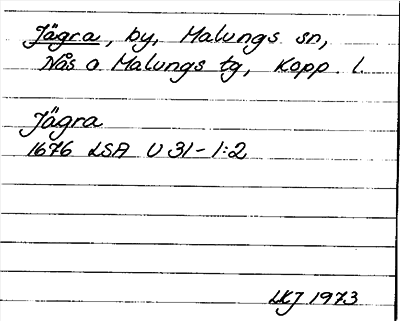 Jägra, by, Malungs sn,
Nås o Malungs tg, Kopp. l.
Jägra
1676 LSA U 31-1:2
LKJ 1973